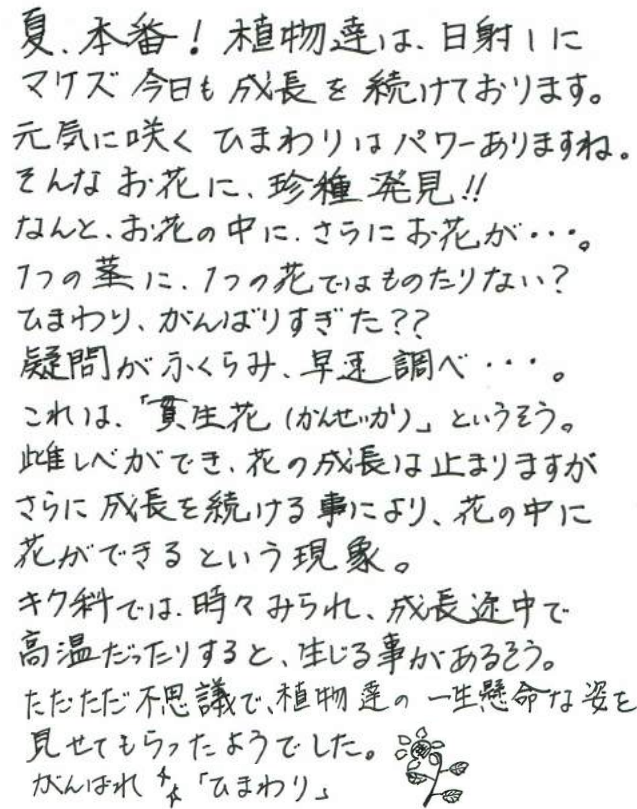 夏、本番！植物達は、日射しに
マケズ今日も成長を続けております。
元気に咲くひまわりはパワーありますね。
そんなお花に、珍種発見!!
なんと、お花の中に、さらにお花が・・・。
1つの茎に、1つの花ではものたりない？
ひまわり、がんばりすぎた??
疑問がふくらみ、早速調べ・・・。
これは、「貫生花(かんせいか)」というそう。
雌しべができ、花の成長は止まりますが
さらに成長を続ける事により、花の中に
花ができるという現象。
キク科では、時々みられ、成長途中で
高温だったりすると、生じる事があるそう。
ただただ不思議で、植物達の一生懸命な姿を
見せてもらったようでした。
がんばれ「ひまわり」